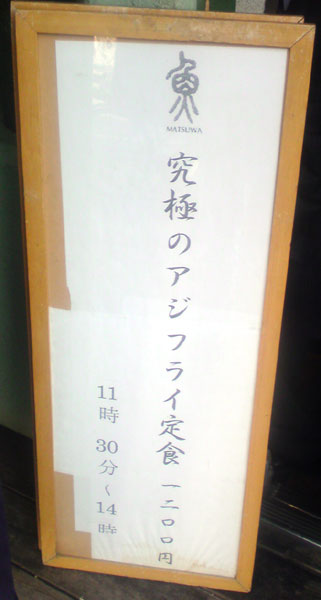 魚
MATSUWA
究極のアジフライ定食 一二〇〇円
11時30分〜14時